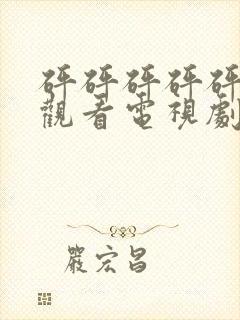 砰砰砰砰砰
觀看電視劇
嚴宏昌